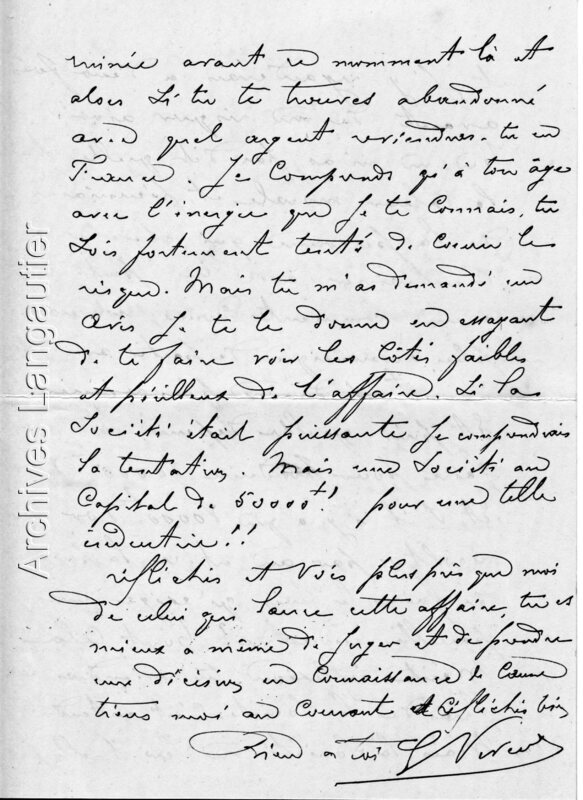 minée avant ce momment là et
alors si tu te trouves abandonné
avec quel argent reviendras-tu en
France. Je Comprends qu'à ton âge
avec l'énergie que je te Connais, tu
sois fortement tenté de Courir le
risque. Mais tu m'as demandé un
avis je te le donne en essayant
de te faire voir les Côtés faibles
et périlleux de l'affaire. Si la
Société était puissante je comprendrais
la tentative. Mais une Société au
Capital de 50000f! pour une telle
industrie!!
réfléchis et Vois plus près que moi
de celui qui lance cette affaire, tu es
mieux à même de juger et de prendre
une décision en Connaissance de Cause
tiens moi au Courant et réfléchis bien
Bien à toi
Archives Langautier